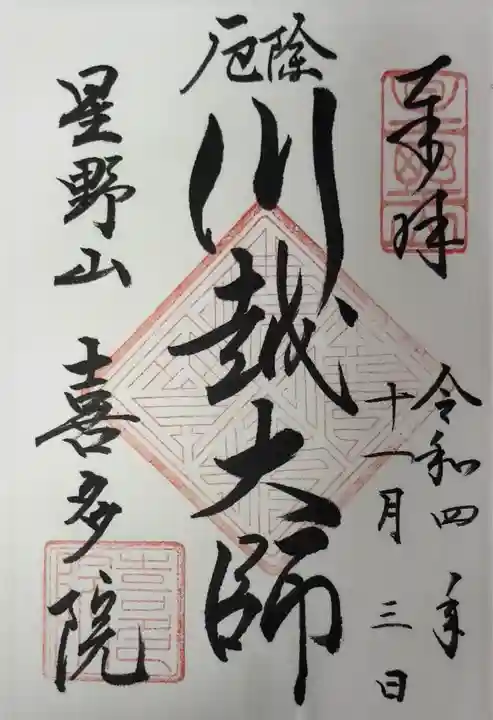 奉拝
令和四年
十一月三日
厄除
川越大師
星野山 喜多院